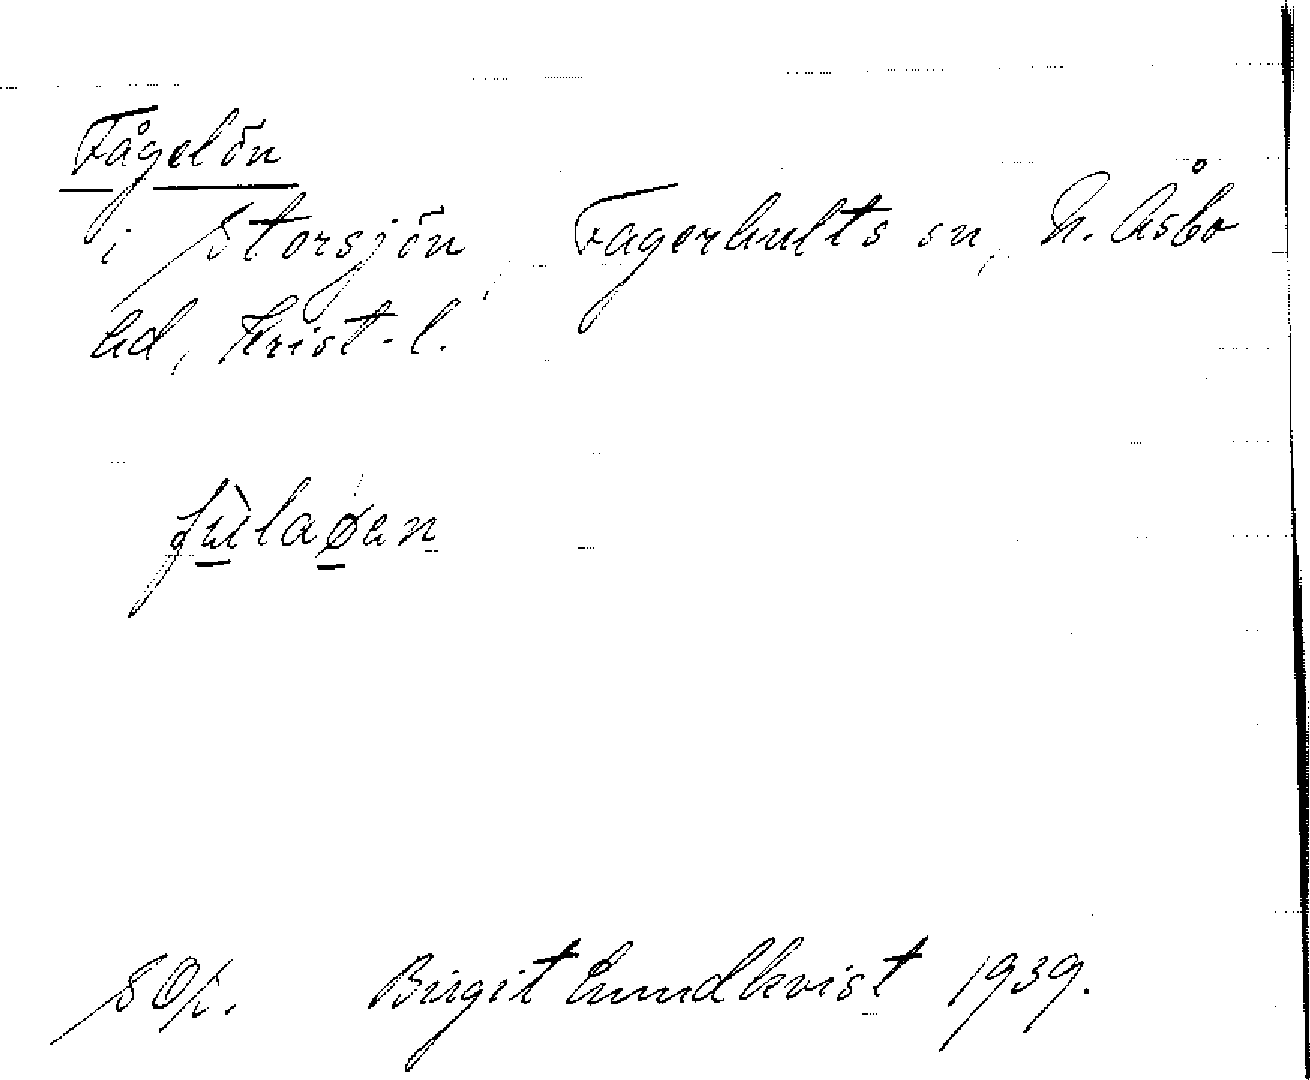 Fågelön
i Storsjön, Fagerhults sn, N. Åsbo
hd, Krist-l.
fùlaøen
Birgit Lundkvist 1939.